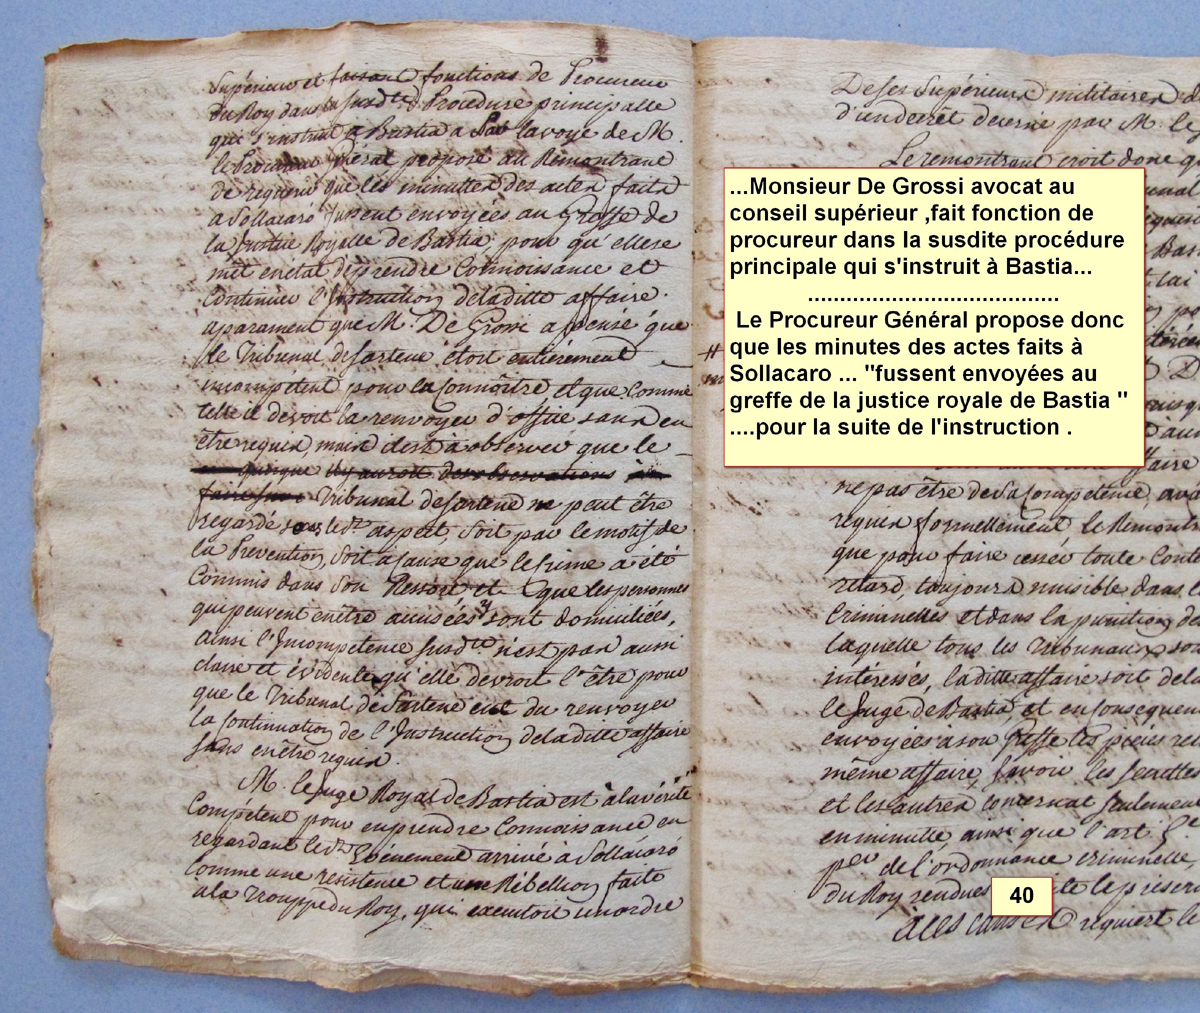 Supérieur et faisant fonctions de Procureur
du Roy dans la susd.te Procedure principalle
qui s'instruit a Bastia a lavoye de M.
le Procureur Gñeral proposé au Remontrant
de requerir que les minuttes des actes faits
a Sollacaró fussent envoyées au Greffe de
la Justice Royalle de Bastia, pour qu'elle se
mit en etat de prendre Connoissance et
Continuer l'Instruction de laditte affaire.
aparament que M. De Grossi a pensé que
le Tribunal de Sartene étoit entièrement
incompetent pour la Connoître et que Comme
telle il devoit la renvoyer d'office sans en
être requis, mais il est à observer que le
quoique il y auroit des observations à
faire sur Tribunal de Sartene ne peut être
regardé sous led.t aspect, soit par le motif de
la Prevention, soit a cause que le crime a été
Commis dans son Ressort et que les personnes
qui peuvent en être accusées y sont domiciliées,
ainsi l'Incompetence susd.te n'est pas aussi
claire et évidente qu'elle devroit l'être pour
que le Tribunal de Sartene eut du renvoyer
la Continuation de l'Instruction de laditte affaire
sans en être requis.
M. le Juge Royal de Bastia est à la vérité
Compétent pour en prendre Connoissance en
regardant led.t Evénement arrivé à Sollacaró
Comme une résistence et une Rébellion faite
a la Trouppe du Roy, qui executoit un ordre
De ses Supérieurs militaires
d'un decret decerné par M. le
Le remontrant croit donc
...Monsieur De Grossi avocat au
conseil supérieur ,fait fonction de
procureur dans la susdite procédure
principale qui s'instruit à Bastia...
.......................................
Le Procureur Général propose donc
que les minutes des actes faits à
Sollacaro ... "fussent envoyées au
greffe de la justice royale de Bastia "
....pour la suite de l'instruction .
affaire
ne pas être de sa Competence,
requis formellement le Remontr
que pour faire cesser toute Conte
retard, toujours nuisible dans
Criminelles et dans la punition de
laquelle tous les Tribunaux so
intéressés, laditte affaire soit
le Juge de Bastia, et en consequen
envoyées a son Greffe les pieces
même affaire, savoir les
et les autres concernat seulement
en minutte, ainsi que l'art. 5.e
de l'ordonnance criminelle,
du Roy rendues le
A ces causes requiert le
40